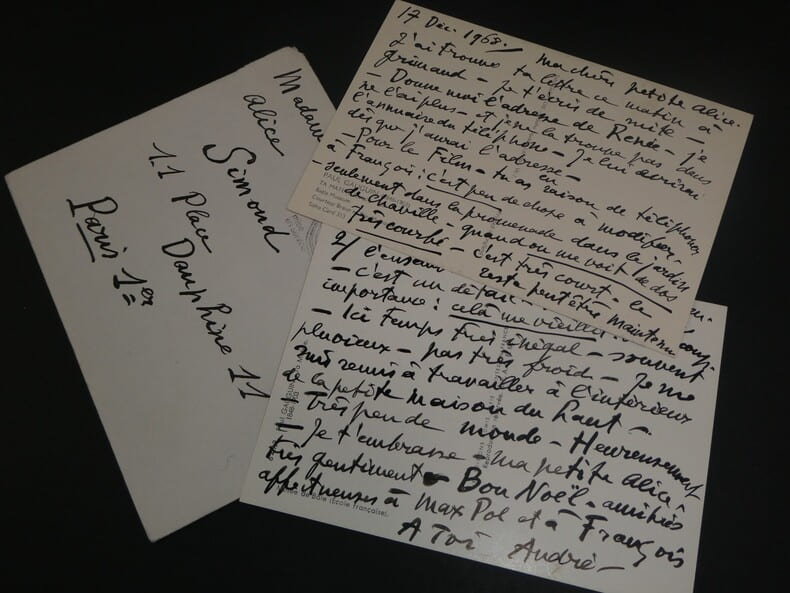 Madame
Alice
Simond
11 Place
Dauphine 11
Paris 1er
17 Déc. 1968./ Ma chère petite Alice.
J'ai trouvé ta lettre ce matin à
grimaud – je t'écris de suite –
– Donne moi l'adresse de Renée – je
ne l'ai plus – et je ne la trouve pas dans
l'annuaire du téléphone – Je lui écrirai
dès que j'aurai l'adresse –
– Pour le Film – tu as eu raison de téléphoner
à François: c'est peu de chose à modifier –
– seulement dans la promenade dans le jardin
de chaville – quand on me voit de dos
très courbé – c'est très court – le
reste peut être maintenu
PAUL GAUGUIN
TA MAT
Basle Museum
Soho Card 313
2/
– c'est un détail
importance: celà me vieillit
– Ici Temps très inégal – souvent
pluvieux – pas très froid – Je me
suis remis à travailler à l'intérieur
de la petite maison du haut –
Très peu de monde – Heureusement
– Je t'embrasse – ma petite Alice
très gentiment – Bon Noël – amitiés
affectueuses à Max Pol et à François
A Toi André –
PAUL GAUGUIN
1848
de Bâle (École française).